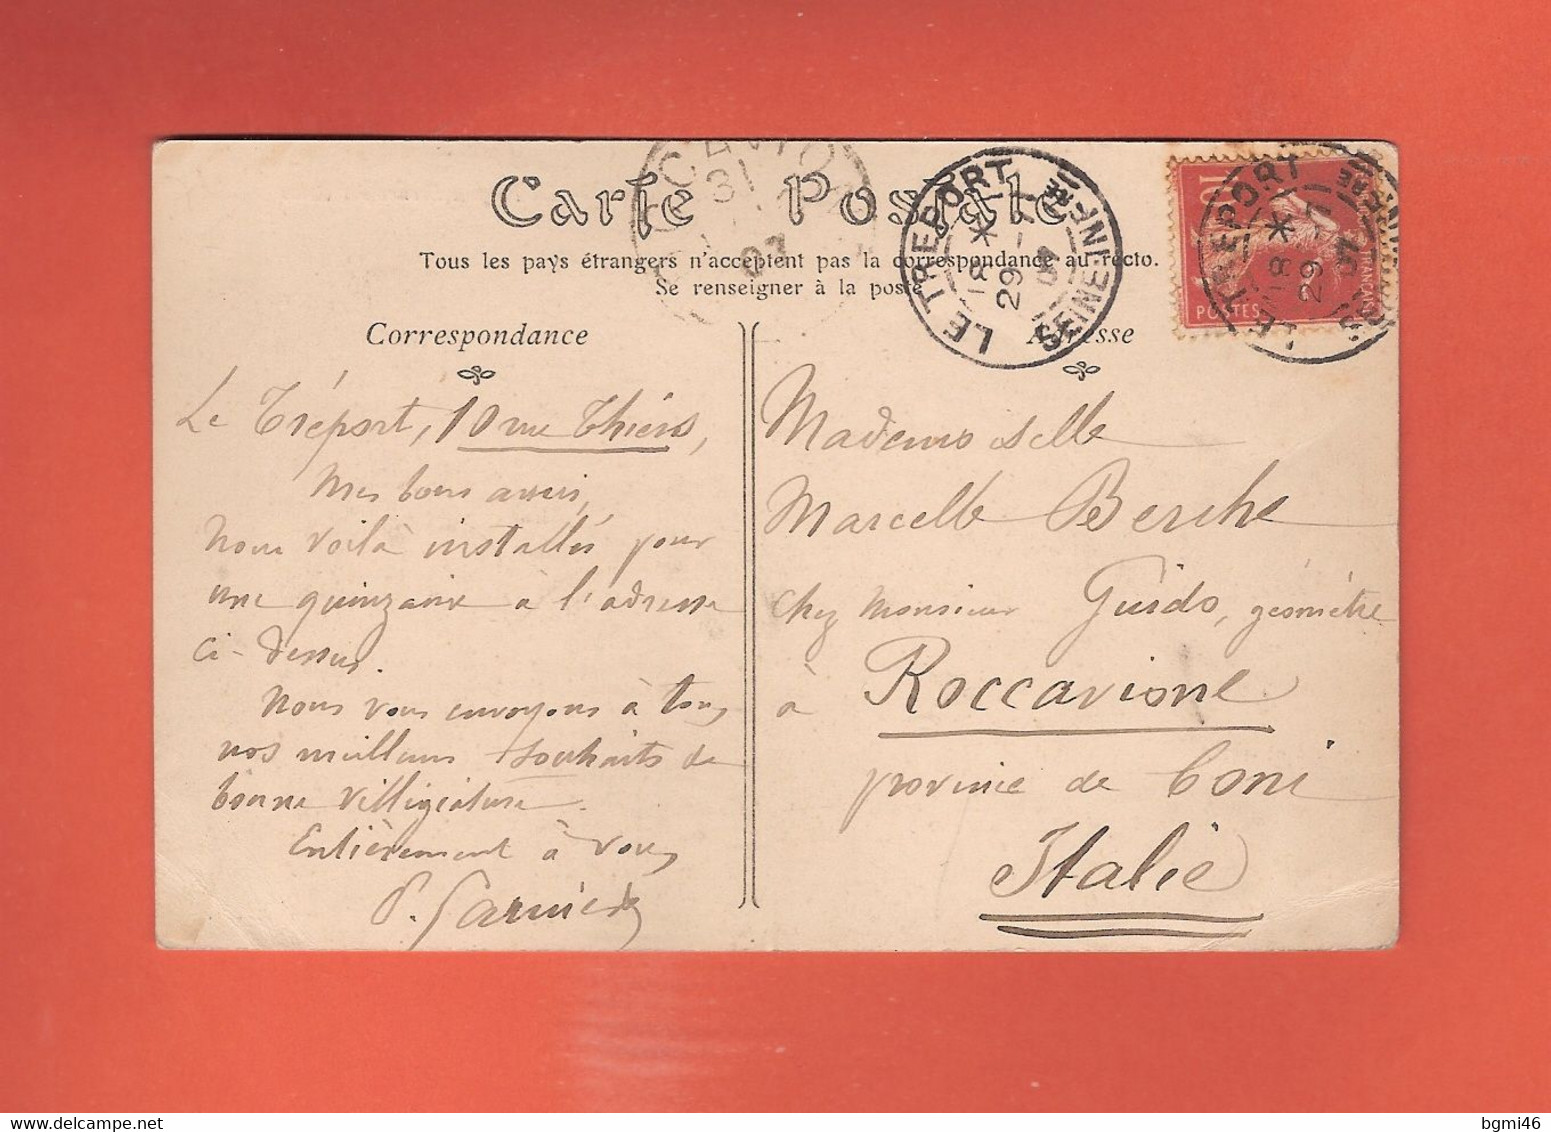 Carte Postale
Tous les pays étrangers n'acceptent pas la correspondance au recto.
Se renseigner à la poste
Correspondance
Le Tréport, 10 rue Thiers,
Mes bons amis,
Nous voilà installés pour
une quinzaine à l'adresse
ci-dessus.
Nous vous envoyons à tous
nos meilleurs souhaits de
bonne villégiature.
Entièrement à vous
P. Garnier
Adresse
Mademoiselle
Marcelle Berche
chez Monsieur Guido, géomètre
à Roccavione
province de Coni
Italie
LE TREPORT
18 *
29 -7
07
SEINE-INFRE
LE TREPORT
18 *
29 -7
SEINE-INFRE
31
07
10
POSTES
bgmi46